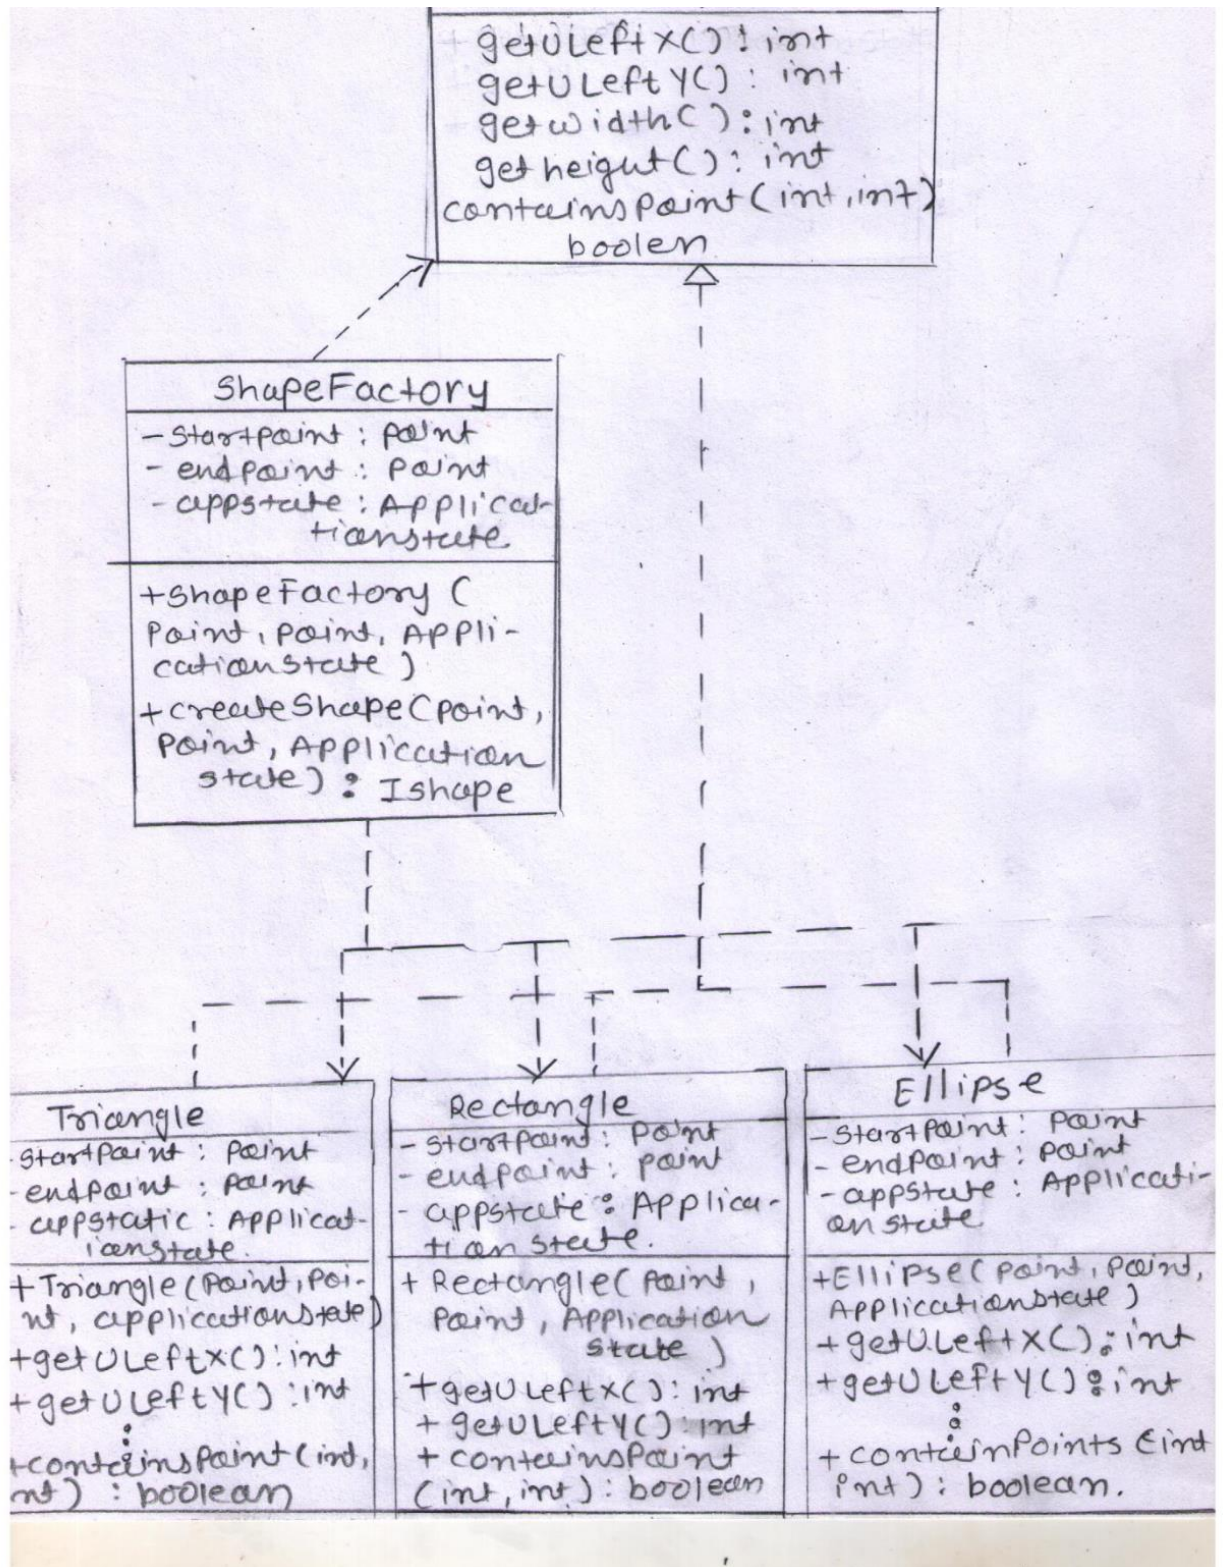 + getULeftX() : int
getULeftY() : int
getwidth() : int
getheigut() : int
containspoint(int, int)
boolen
ShapeFactory
- startpoint : point
- endpoint : point
- appstate : Applicat-
tionstate
+ShapeFactory (
Point, point, Appli-
cationstate )
+createShape(point,
Point, Application
state) : Ishape
Triangle
-startpoint : point
-endpoint : point
- appstatic : Applicat-
ionstate.
+Triangle(Point, Poi-
nt, applicationstate)
+getULeftX() : int
+getULeftY() : int
:
+containsPoint(int,
nt) : boolean
Rectangle
- startpoint : point
- endpoint : point
- appstate : Applica-
tion state.
+ Rectangle( Point,
Point, Application
state )
+getULeftX() : int
+ getULeftY() : int
+ containsPoint
(int, int) : boolean
Ellipse
-startpoint : Point
- endpoint : point
- appstate : Applicati-
on state
+Ellipse( point, point,
Applicationstate )
+getULeftX() : int
+getULeftY() : int
:
+ containPoints (int
int) : boolean.